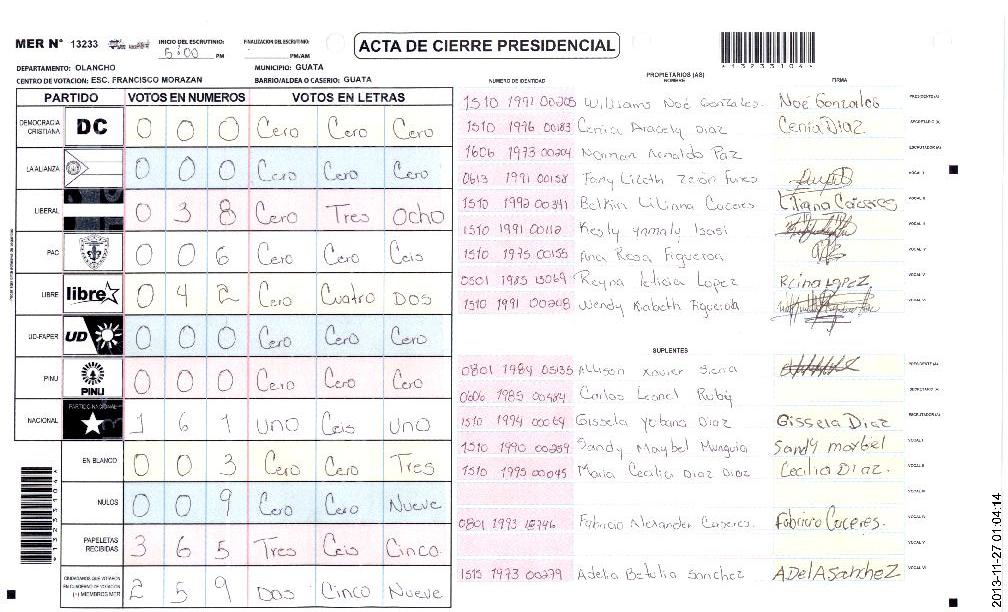 MER N° 13233 INICIO DEL ESCRUTINIO: 5:00 PM FINALIZACION DEL ESCRUTINIO: PM/AM
ACTA DE CIERRE PRESIDENCIAL
*13233104*
DEPARTAMENTO: OLANCHO MUNICIPIO: GUATA
CENTRO DE VOTACION: ESC. FRANCISCO MORAZAN BARRIO/ALDEA O CASERIO: GUATA
PARTIDO VOTOS EN NUMEROS VOTOS EN LETRAS
DEMOCRACIA CRISTIANA DC 0 0 0 Cero Cero Cero
LA ALIANZA 0 0 0 Cero Cero Cero
LIBERAL 0 3 8 Cero Tres Ocho
PAC 0 0 6 Cero Cero Ceis
LIBRE libre 0 4 2 Cero Cuatro Dos
UD-FAPER UD 0 0 0 Cero Cero Cero
PINU PINU 0 0 0 Cero Cero Cero
NACIONAL PARTIDO NACIONAL 1 6 1 Uno Ceis Uno
EN BLANCO 0 0 3 Cero Cero Tres
NULOS 0 0 9 Cero Cero Nueve
PAPELETAS RECIBIDAS 3 6 5 Tres Ceis Cinco
CIUDADANOS QUE VOTARON EN CUADERNO DE VOTACION (+) MIEMBROS MER 2 5 9 Dos Cinco Nueve
*13233104*
NUMERO DE IDENTIDAD PROPIETARIOS (AS) NOMBRE FIRMA
1510 1991 00205 Williams Noé Gonzales. Noé Gonzales PRESIDENTE(A)
1510 1996 00183 Cenia Aracely Diaz Cenia Diaz SECRETARIO (A)
1606 1973 00204 Norman Arnaldo Paz ESCRUTADOR(A)
0613 1991 00158 Lizeth Funes VOCAL I
1510 1992 00341 Belkin Liliana Caceres Liliana Caceres VOCAL II
1510 1991 00112 Kesly VOCAL III
1510 1995 00155 Ana Rosa Figueroa VOCAL IV
0501 1985 13069 Reyna leticia Lopez Reina Lopez VOCAL V
1510 1991 00208 Wendy Figueroa VOCAL VI
SUPLENTES
0801 1984 05135 Allison Xavier PRESIDENTE(A)
0606 1985 00484 Carlos Leonel Ruby SECRETARIO (A)
1510 1994 00069 Gissela Yobana Diaz Gissela Diaz ESCRUTADOR(A)
1510 1990 00259 Sandy Maybel Munguia Sandy maybel VOCAL I
1510 1995 00045 Maria Cecilia Diaz Diaz Cecilia Diaz. VOCAL II
VOCAL III
0801 1993 Fabricio Alexander Caceres. Fabricio Caceres. VOCAL IV
VOCAL V
1515 1973 00279 Adelia Betulia Sanchez ADelA Sanchez VOCAL VI
2013-11-27 01:04:14